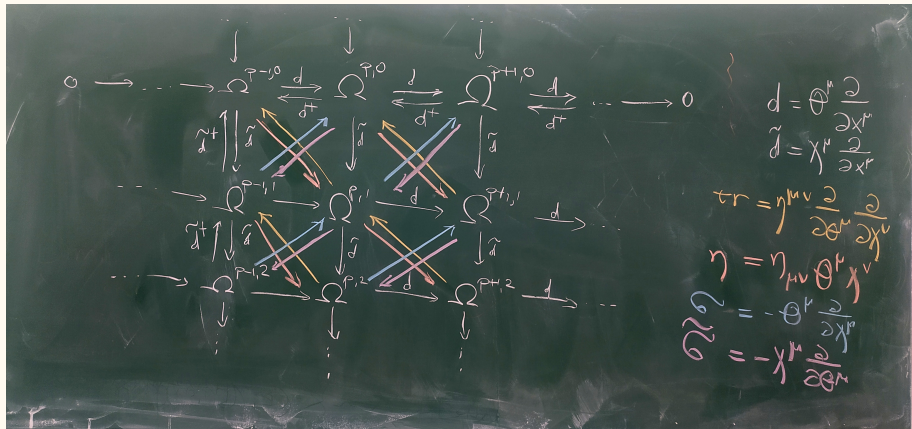 ... ... ...
0 → ... → Ω^{p-1,0} d d† Ω^{p,0} d d† Ω^{p+1,0} d d† ... → 0
d̃† d̃ d̃ d̃
... → Ω^{p-1,1} → Ω^{p,1} d Ω^{p+1,1} d ...
d̃† d̃ d̃ d̃
... → Ω^{p-1,2} → Ω^{p,2} d Ω^{p+1,2} d ...
⋮ ⋮ ⋮
d = θ^μ ∂/∂x^μ
d̃ = χ^μ ∂/∂x^μ
tr = η^{μν} ∂/∂θ^μ ∂/∂χ^ν
η = η_{μν} θ^μ χ^ν
σ = -θ^μ ∂/∂χ^μ
σ̃ = -χ^μ ∂/∂θ^μ